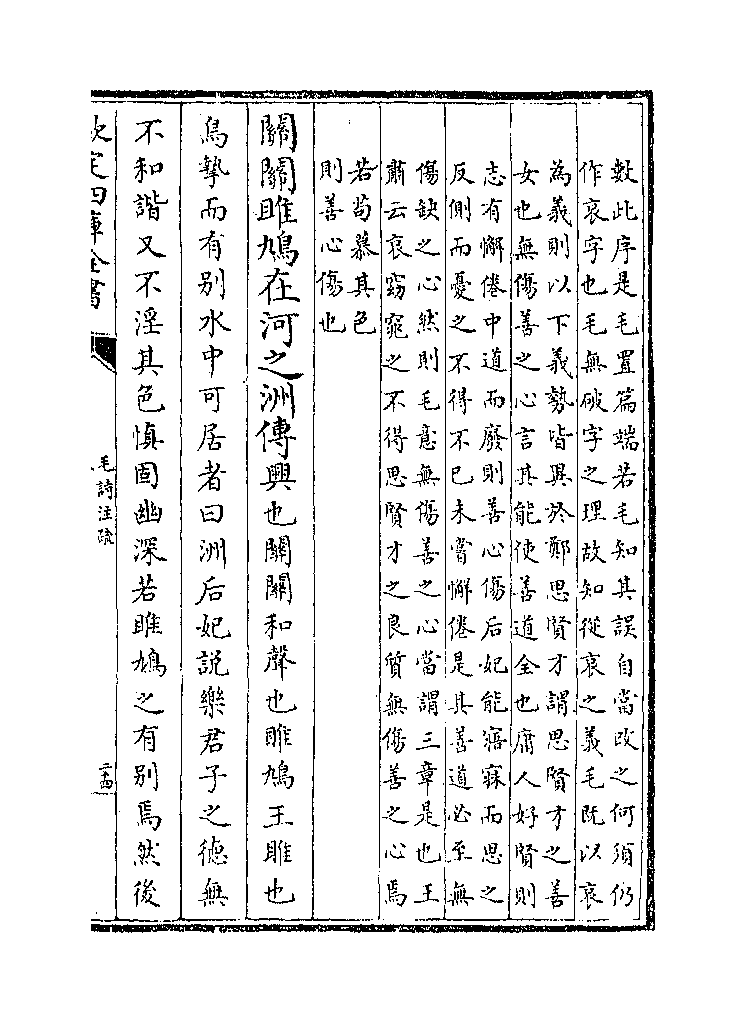 數此序是毛置篇端若毛知其誤自當改之何須仍
作哀字也毛無破字之理故知從哀之義毛既以哀
為義則以下義勢皆異於鄭思賢才謂思賢才之善
女也無傷善之心言其能使善道全也庸人好賢則
志有懈倦中道而廢則善心傷后妃能寤寐而思之
反側而憂之不得不已未嘗懈倦是其善道必至無
傷缺之心然則毛意無傷善之心當謂三章是也王
肅云哀窈窕之不得思賢才之良質無傷善之心焉
若苟慕其色
則善心傷也
關關雎鳩在河之洲傳興也關關和聲也雎鳩王雎也
鳥摯而有别水中可居者曰洲后妃説樂君子之德無
不和諧又不淫其色慎固幽深若雎鳩之有别焉然後
欽定四庫全書
毛詩注疏
二十四